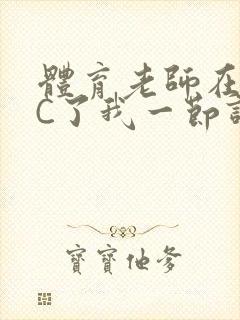 體育老師在
C了我一節
寶寶他爹